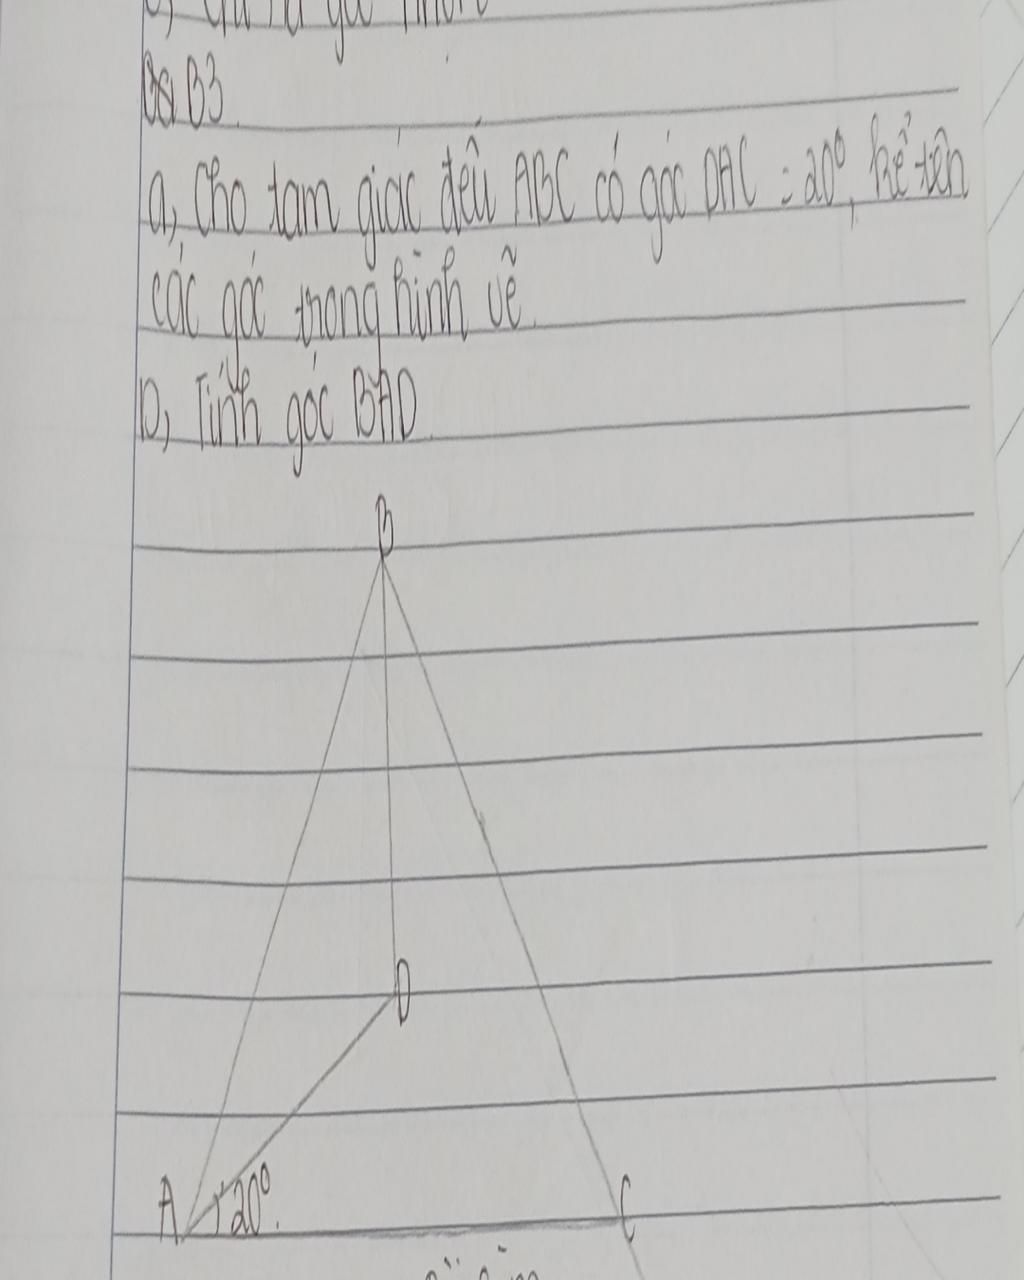 B3.
a, Cho tam giác đều ABC có góc DAC = 20°, kể tên
các góc trong hình vẽ.
b, Tính góc BAD.
B
D
A 20°. C